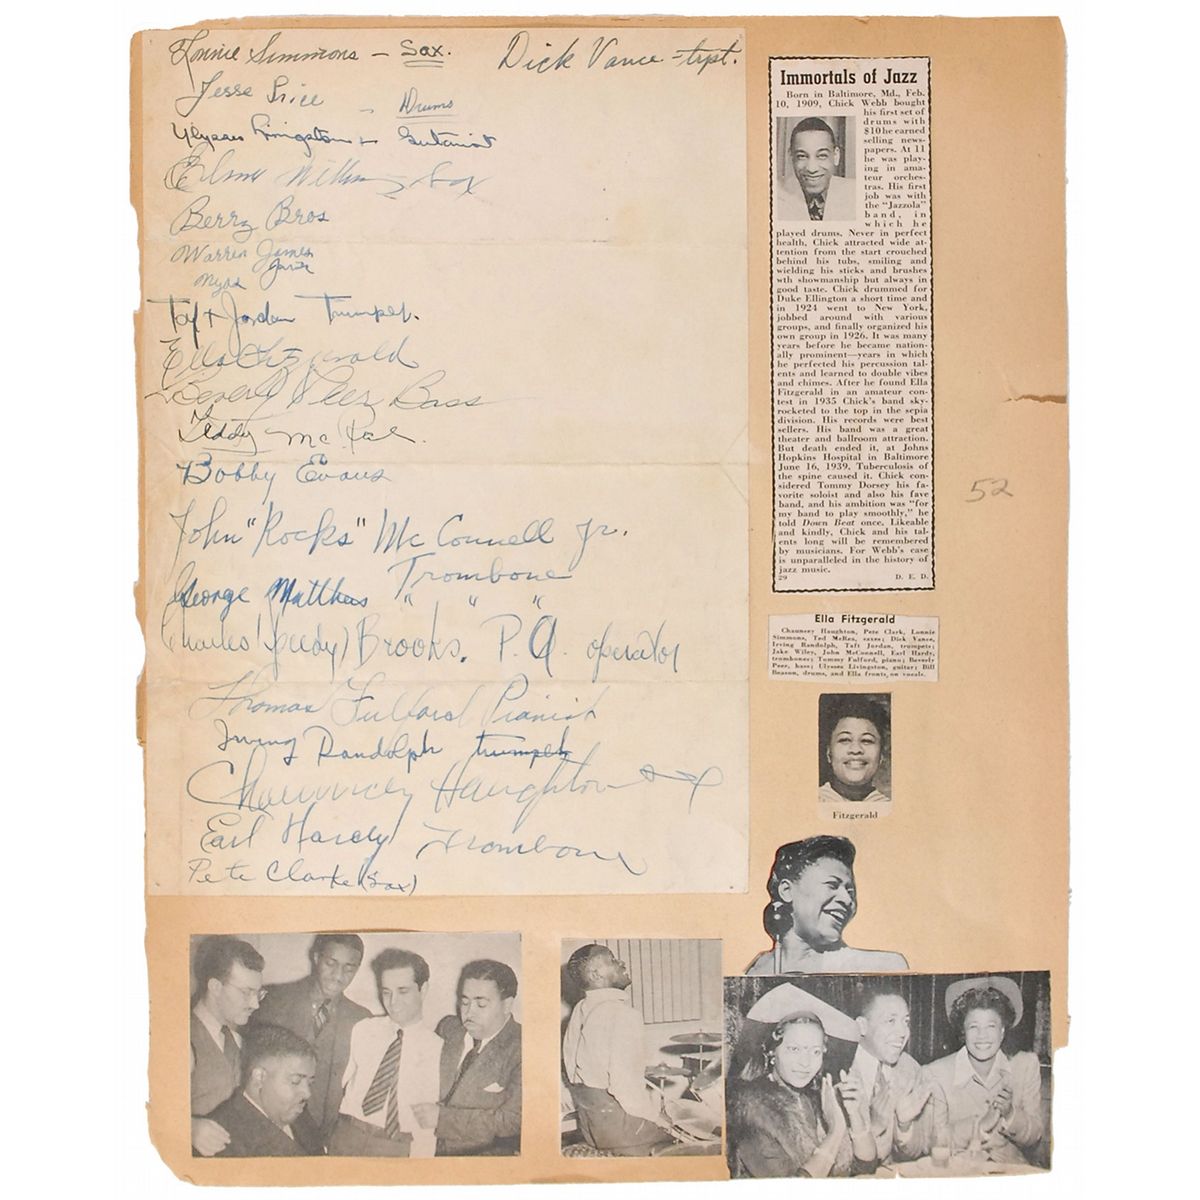 Lonnie Simmons - Sax.
Dick Vance - trpt.
Jesse Price - Drums
Ulysses Livingston - Guitarist
Sax
Berry Bros
Warren James
Nyas
Taft Jordan Trumpet.
Ella Fitzgerald
Beverly Peer Bass
Teddy McRae.
Bobby Evans
John "Rocks" McConnell Jr.
Trombone
George Matthews " " "
Charles (Speedy) Brooks. P.A. operator
Thomas Fulford Pianist
Irving Randolph trumpet
Chauncey Haughton sax
Earl Hardy Trombone
Pete Clarke (Sax)
Immortals of Jazz
Born in Baltimore, Md., Feb.
10, 1909, Chick Webb bought
his first set of
drums with
$10 he earned
selling news-
papers. At 11
he was play-
ing in ama-
teur orches-
tras. His first
job was with
the "Jazzola"
band, in
which he
played drums. Never in perfect
health, Chick attracted wide at-
tention from the start crouched
behind his tubs, smiling and
wielding his sticks and brushes
wth showmanship but always in
good taste. Chick drummed for
Duke Ellington a short time and
in 1924 went to New York,
jobbed around with various
groups, and finally organized his
own group in 1926. It was many
years before he became nation-
ally prominent—years in which
he perfected his percussion tal-
ents and learned to double vibes
and chimes. After he found Ella
Fitzgerald in an amateur con-
test in 1935 Chick's band sky-
rocketed to the top in the sepia
division. His records were best
sellers. His band was a great
theater and ballroom attraction.
But death ended it, at Johns
Hopkins Hospital in Baltimore
June 16, 1939. Tuberculosis of
the spine caused it. Chick con-
sidered Tommy Dorsey his fa-
vorite soloist and also his fave
band, and his ambition was "for
my band to play smoothly," he
told Down Beat once. Likeable
and kindly, Chick and his tal-
ents long will be remembered
by musicians. For Webb's case
is unparalleled in the history of
jazz music.
29 D. E. D.
52
Ella Fitzgerald
Chauncey Haughton, Pete Clark, Lonnie
Simmons, Ted McRea, saxes; Dick Vance,
Irving Randolph, Taft Jordan, trumpets;
Jake Wiley, John McConnell, Earl Hardy,
trombones; Tommy Fulford, piano; Beverly
Peer, bass; Ulysses Livingston, guitar; Bill
Beason, drums, and Ella fronts, on vocals.
Fitzgerald